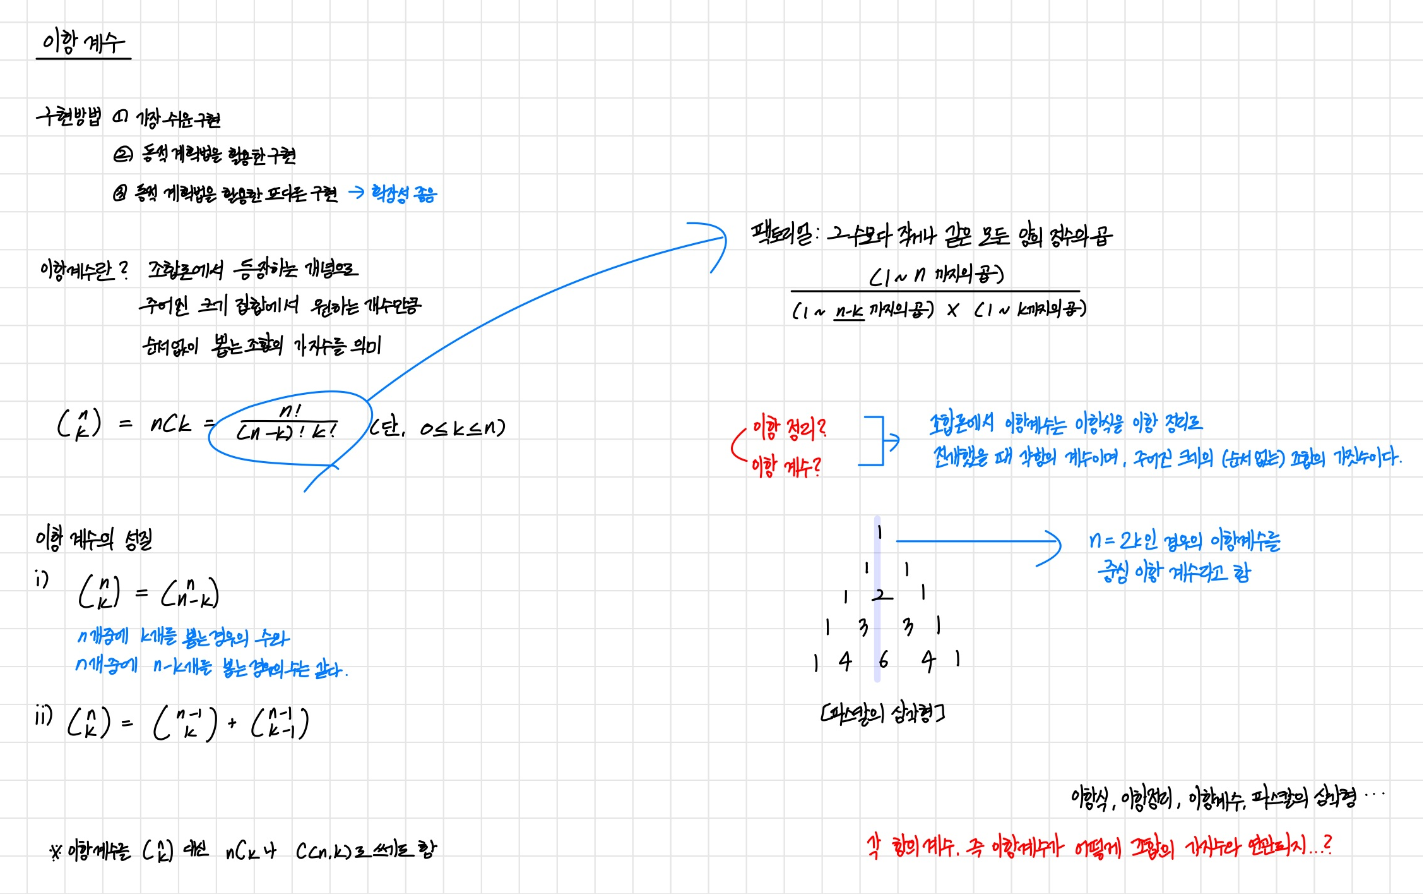 이항 계수
구현방법 ① 가장 쉬운 구현
② 동적 계획법을 활용한 구현
③ 동적 계획법을 활용한 또다른 구현 → 확장성 좋음
이항계수란? 조합론에서 등장하는 개념으로
주어진 크기 집합에서 원하는 개수만큼
순서없이 뽑는 조합의 가지수를 의미
(n k) = nCk = n! / (n-k)! k! (단, 0≤k≤n)
이항 계수의 성질
i) (n k) = (n n-k)
n개중에 k개를 뽑는경우의 수와
n개중에 n-k개를 뽑는경우의수는 같다.
ii) (n k) = (n-1 k) + (n-1 k-1)
※ 이항계수를 (n k) 대신 nCk 나 C(n,k)로 쓰기도 함
팩토리얼: 그 수보다 작거나 같은 모든 양의 정수의 곱
(1 ~ n 까지의 곱)
(1 ~ n-k 까지의 곱) × (1 ~ k까지의 곱)
이항 정리?
이항 계수?
조합론에서 이항계수는 이항식을 이항 정리로
전개했을 때 각항의 계수이며, 주어진 크기의 (순서 없는) 조합의 가짓수이다.
1
1 1
1 2 1
1 3 3 1
1 4 6 4 1
[파스칼의 삼각형]
n = 2k인 경우의 이항계수를
중심 이항 계수라고 함
이항식, 이항정리, 이항계수, 파스칼의 삼각형 ...
각 항의 계수, 즉 이항계수가 어떻게 조합의 가지수와 연관되지...?